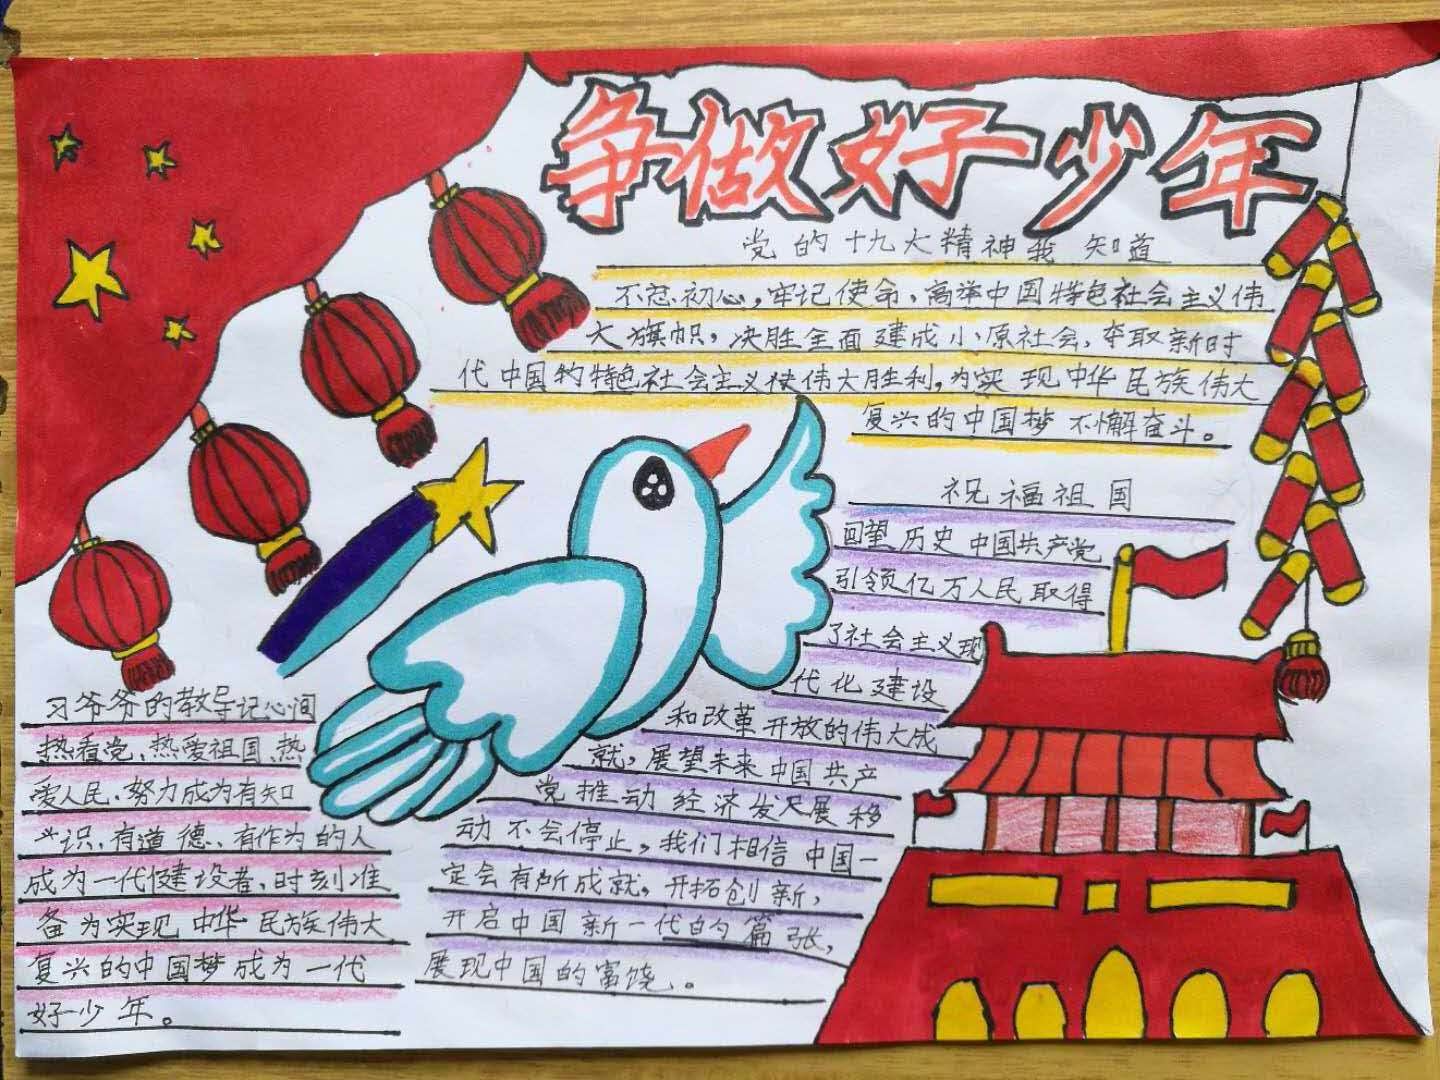 争做好少年
党的十九大精神我知道
不忘初心，牢记使命，高举中国特色社会主义伟
大旗帜，决胜全面建成小原社会，夺取新时
代中国的特色社会主义伟大胜利，为实现中华民族伟大
复兴的中国梦不懈奋斗。
祝福祖国
回望历史中国共产党
引领亿万人民取得
了社会主义现
代化建设
和改革开放的伟大成
就，展望未来中国共产
党推动经济发尺展移
动不会停止，我们相信中国一
定会有所成就，开拓创新，
开启中国新一代的篇张，
展现中国的富饶。
习爷爷的教导记心间
热看党、热爱祖国、热
爱人民、努力成为有知
识、有道德、有作为的人
成为一代健设者，时刻准
备为实现中华民族伟大
复兴的中国梦成为一代
好少年。